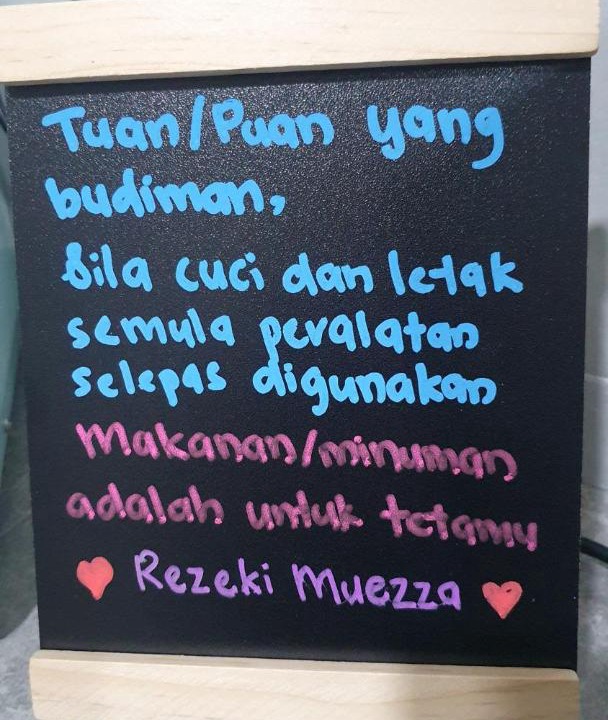 Tuan/Puan yang
budiman,
Sila cuci dan letak
semula peralatan
selepas digunakan
Makanan/minuman
adalah untuk tetamu
Rezeki Muezza